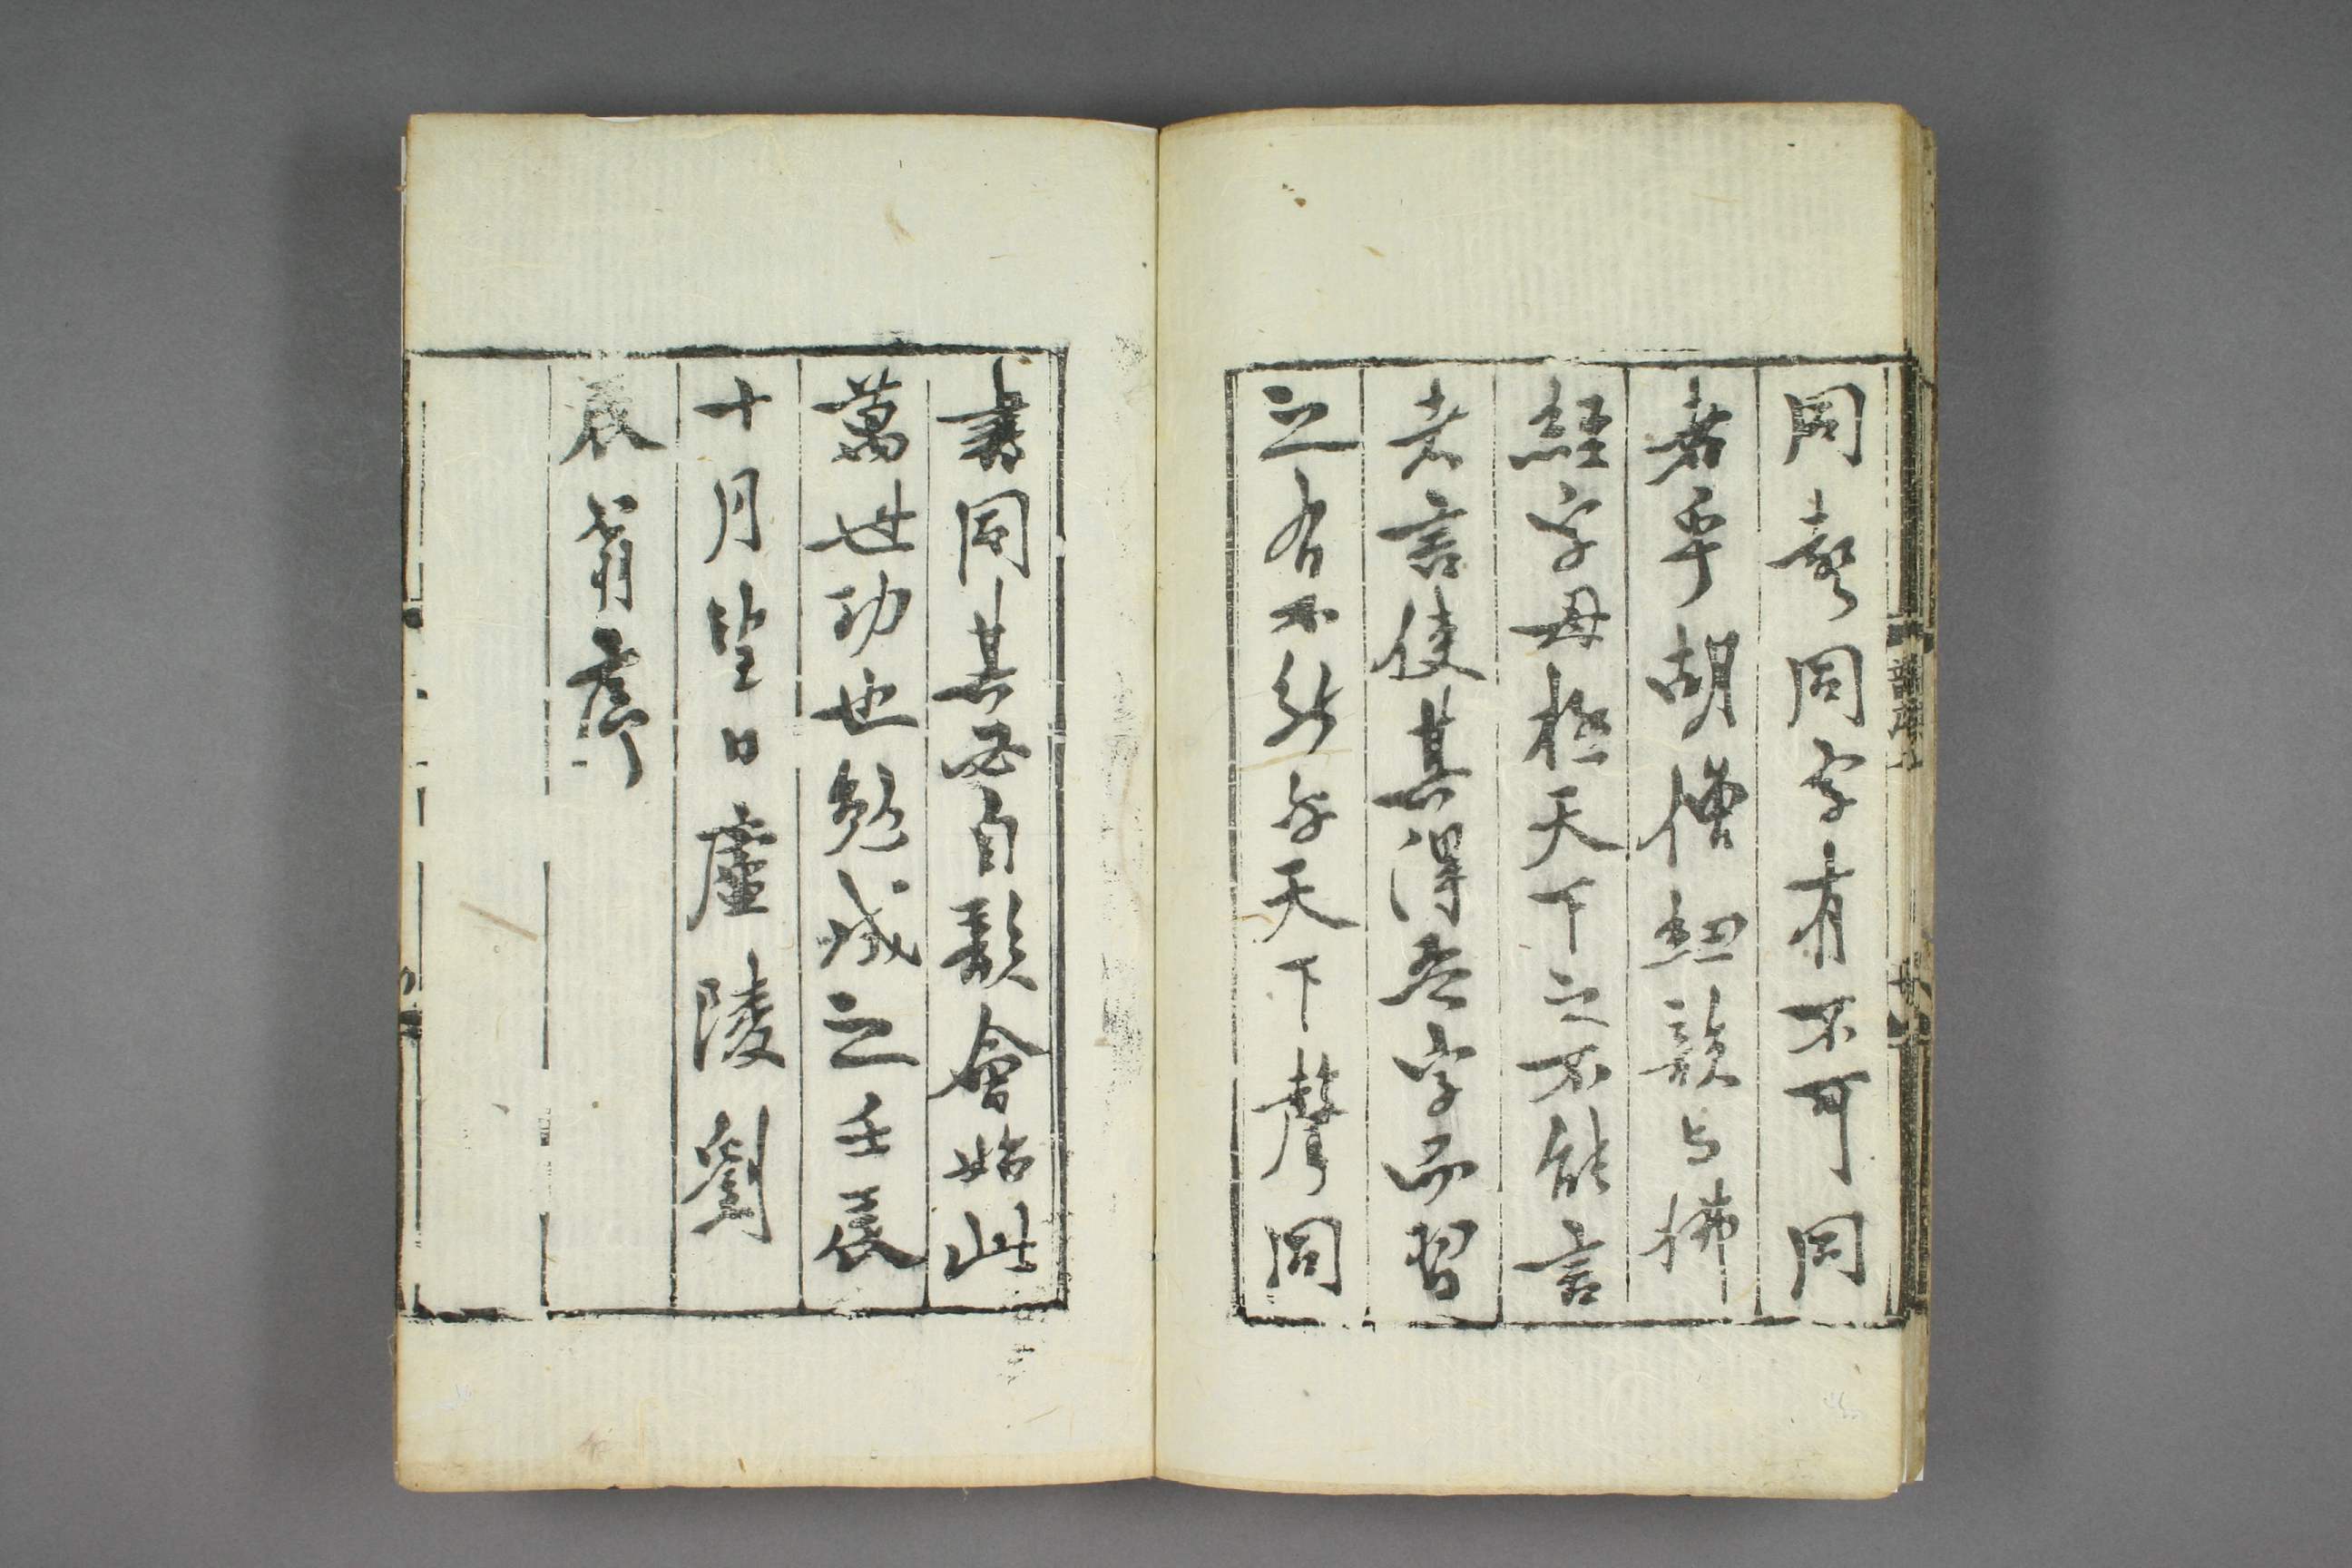 同聲同字有不可同
者乎胡僧紐韻与佛
經字母極天下之不能言
者言使其得吾字而習
之有不能与天下聲同
書同其必自韻會始此
萬世功也勉成之壬辰
十月望日廬陵劉
辰翁序